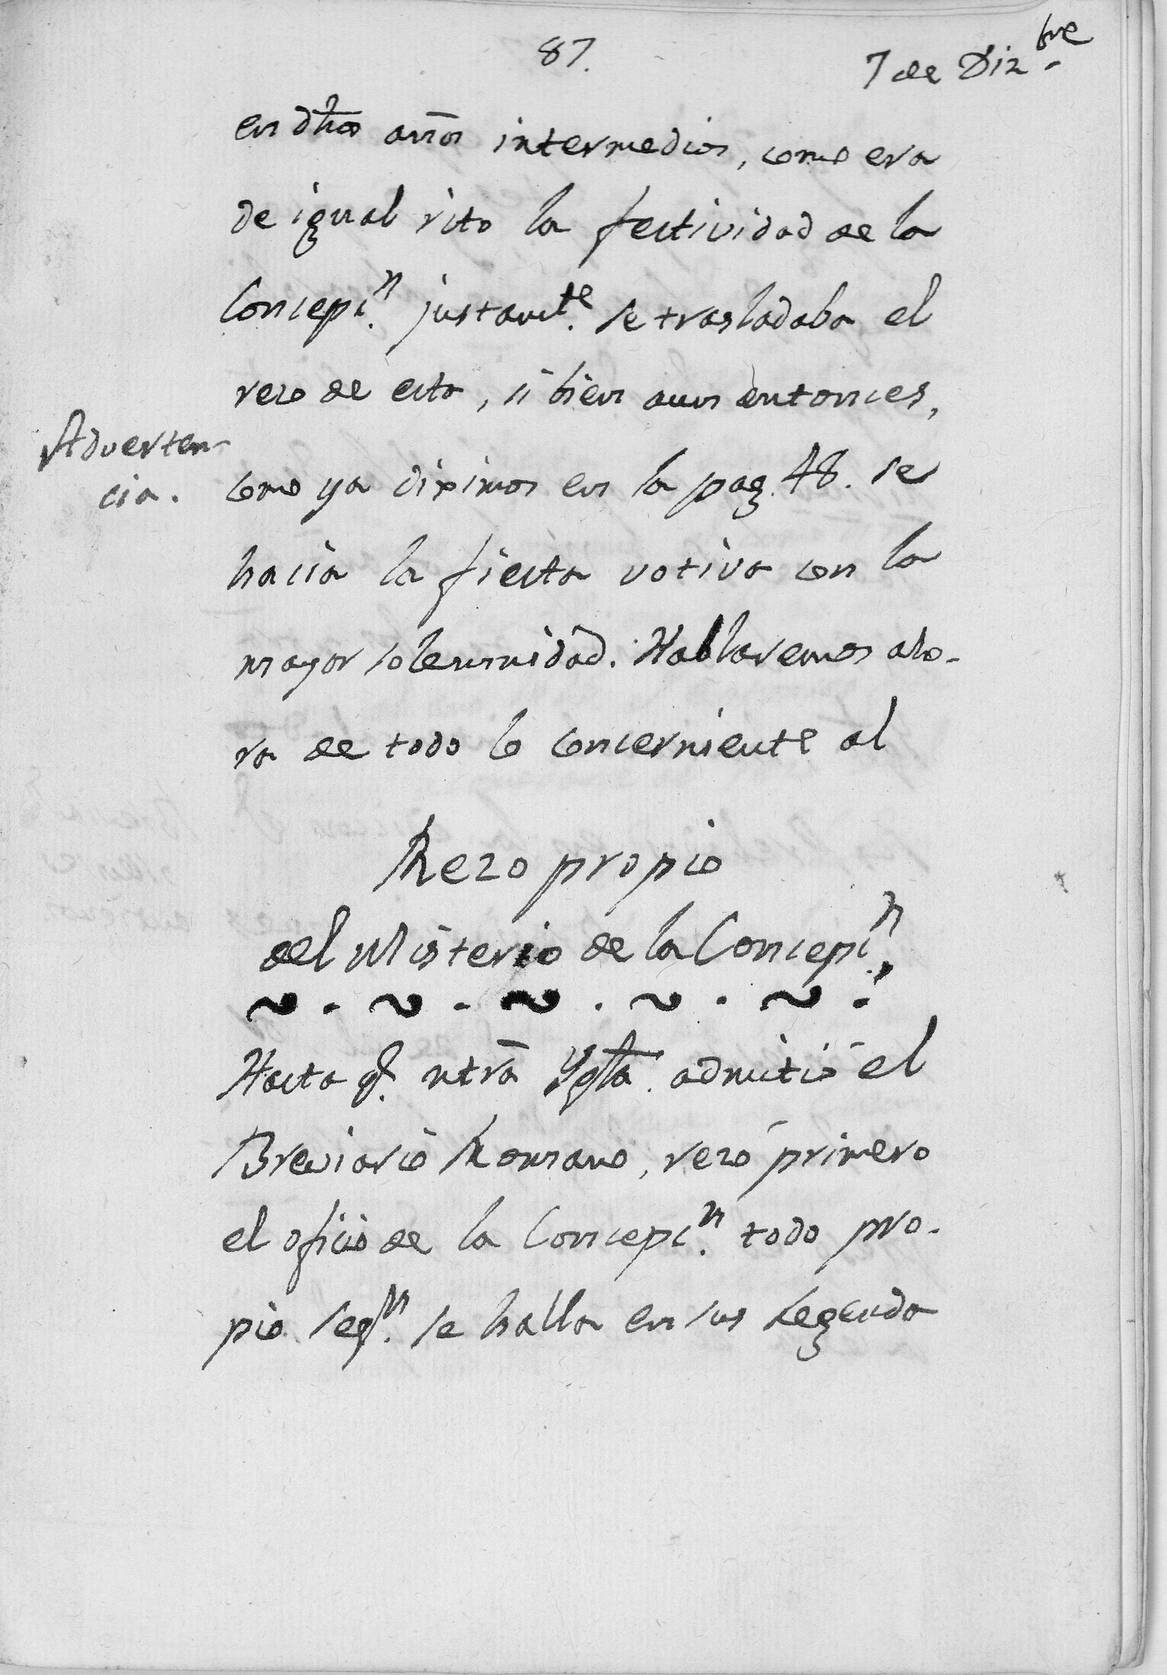 87.
7 de Diz.bre
en dhos años intermedios, como era
de igual rito la festividad de la
Concepc.n justamt.e se trasladaba el
rezo de esta, si bien aun entonces,
Adverten-
cia.
como ya diximos en la pag. 48. se
hacia la fiesta votiva con la
mayor solemnidad. Hablaremos aho-
ra de todo lo concerniente al
Rezo propio
del Misterio de la Concepc.n
Hasta q.e ntra Ygla. admitió el
Breviario Romano, rezó primero
el oficio de la Concepc.n todo pro-
pio seg.n se halla en sus Legenda